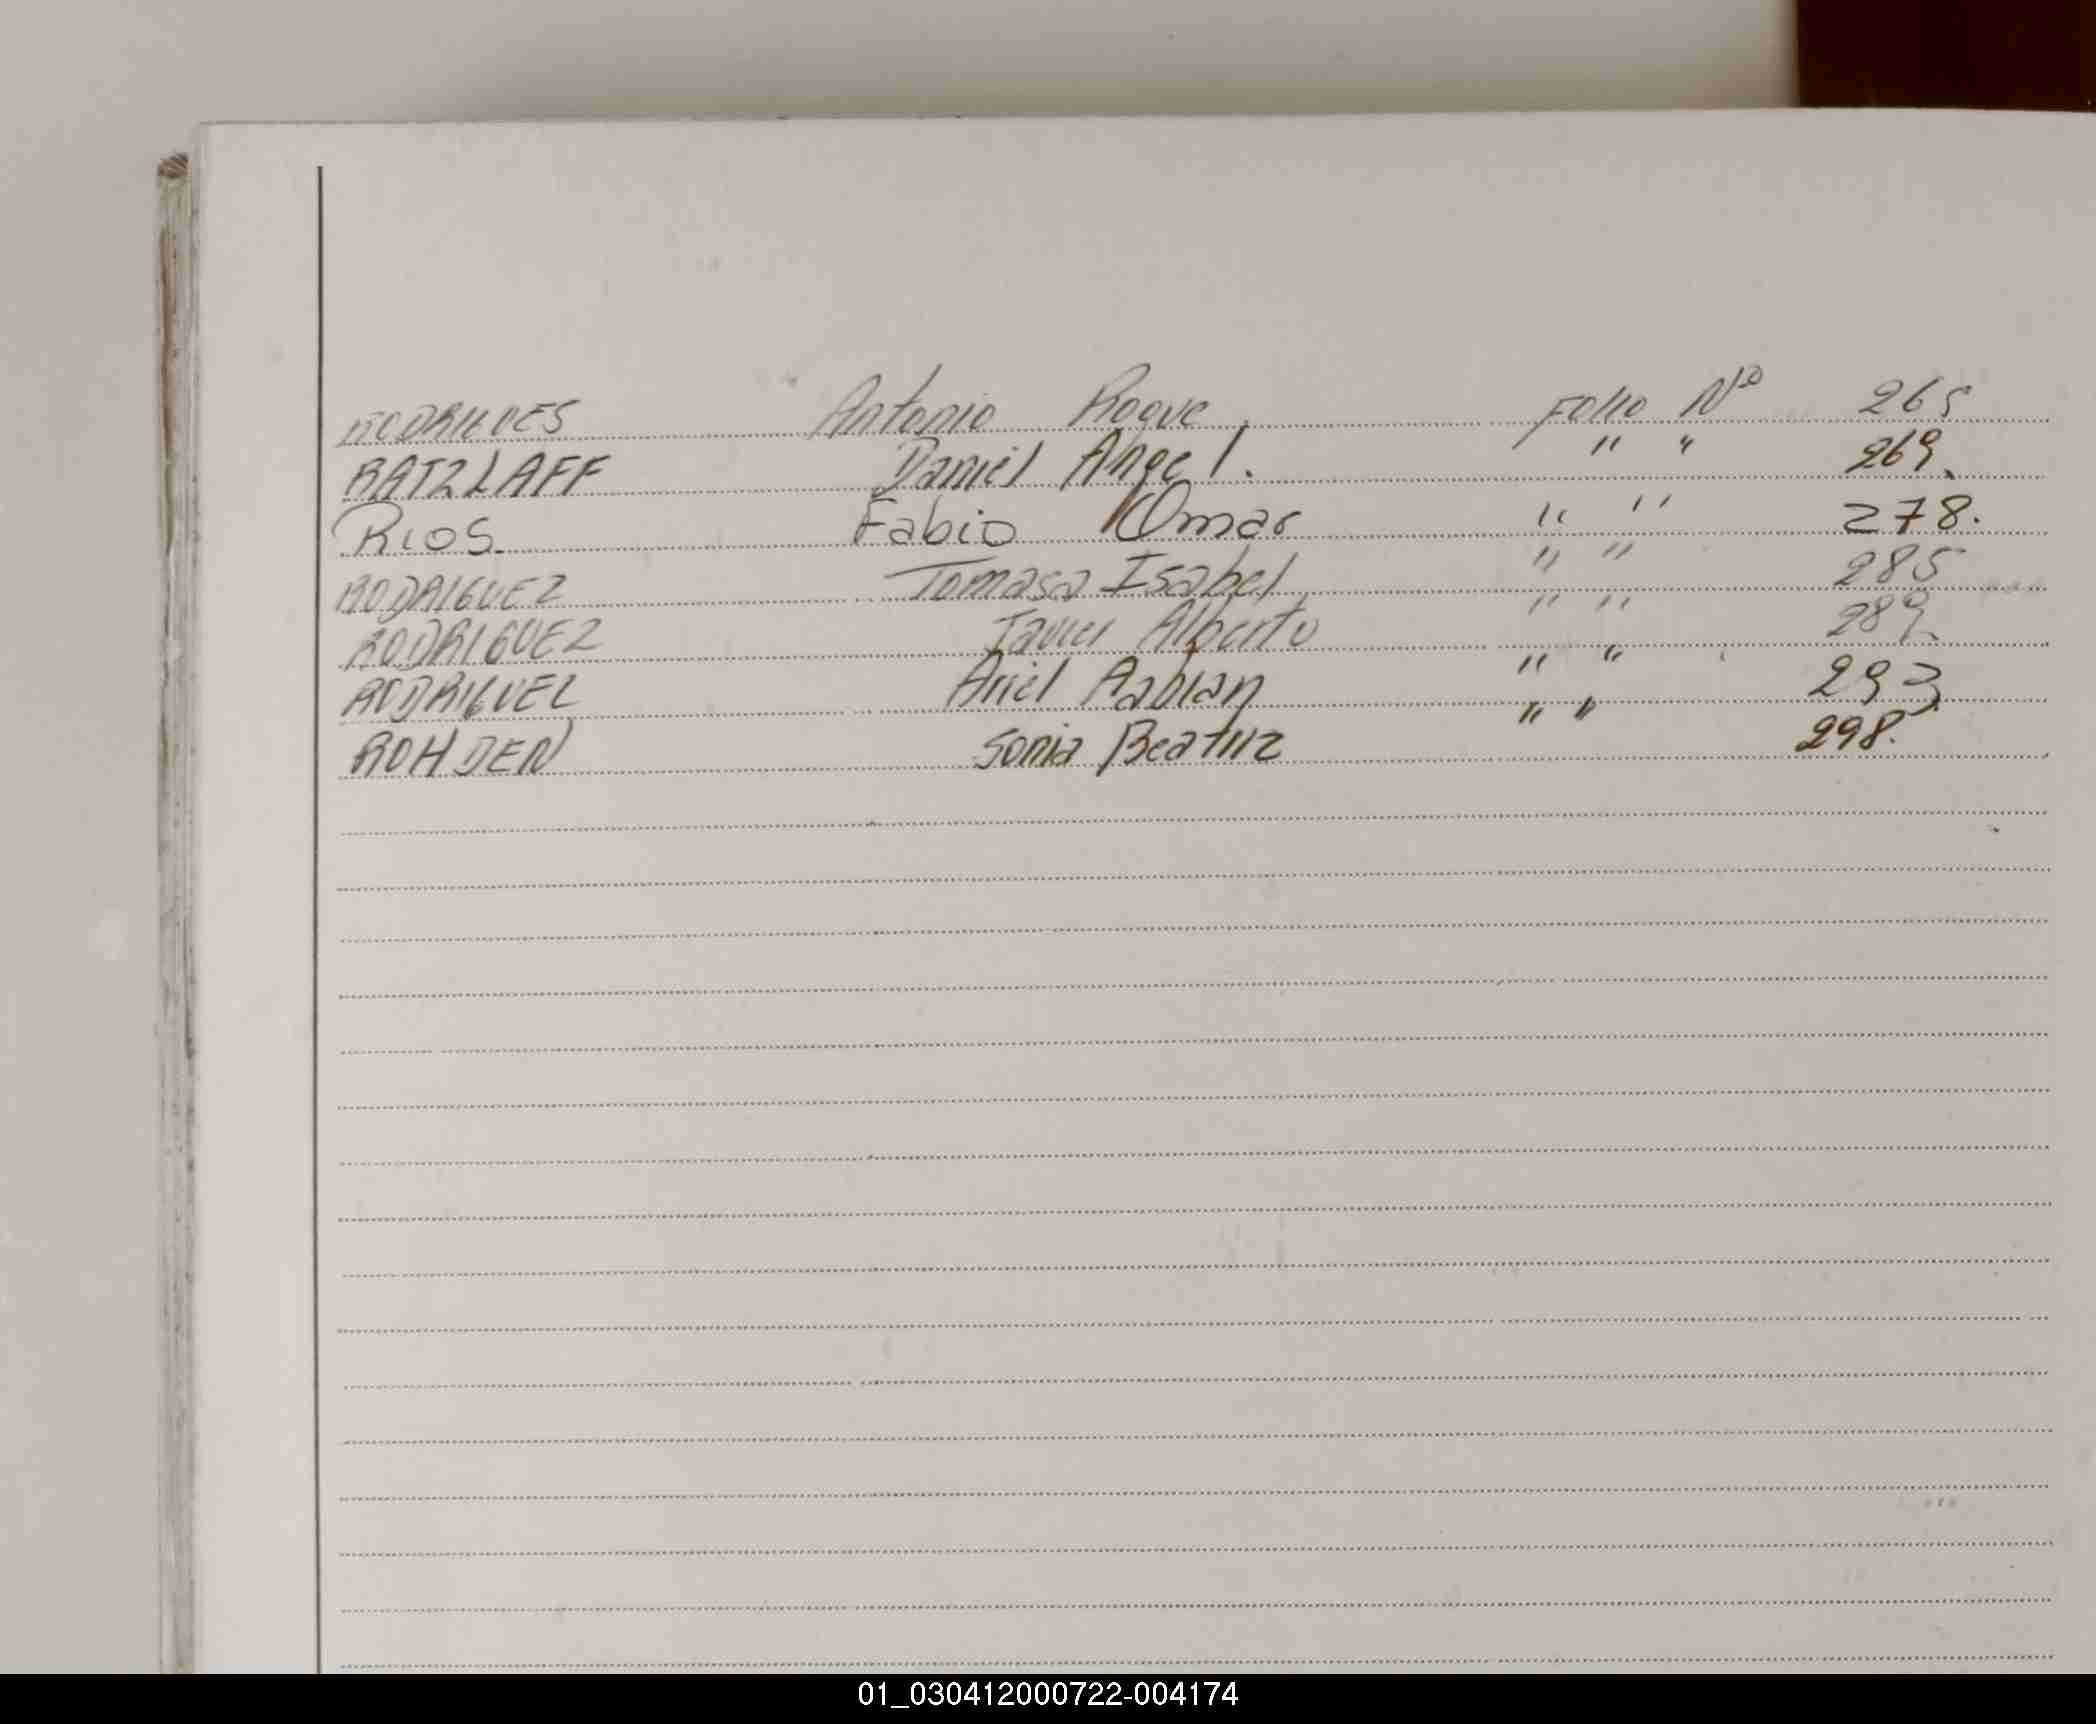 RODRIGUES Antonio Roque. Folio Nº 265
RATZLAFF Daniel Angel. " " 269.
RIOS. Fabio Omar " " 278.
RODRIGUEZ Tomasa Isabel " " 285
RODRIGUEZ Javier Alberto " " 289.
RODRIGUEZ Ariel Fabian " " 293
ROHDEN Sonia Beatriz 298.
01_030412000722-004174